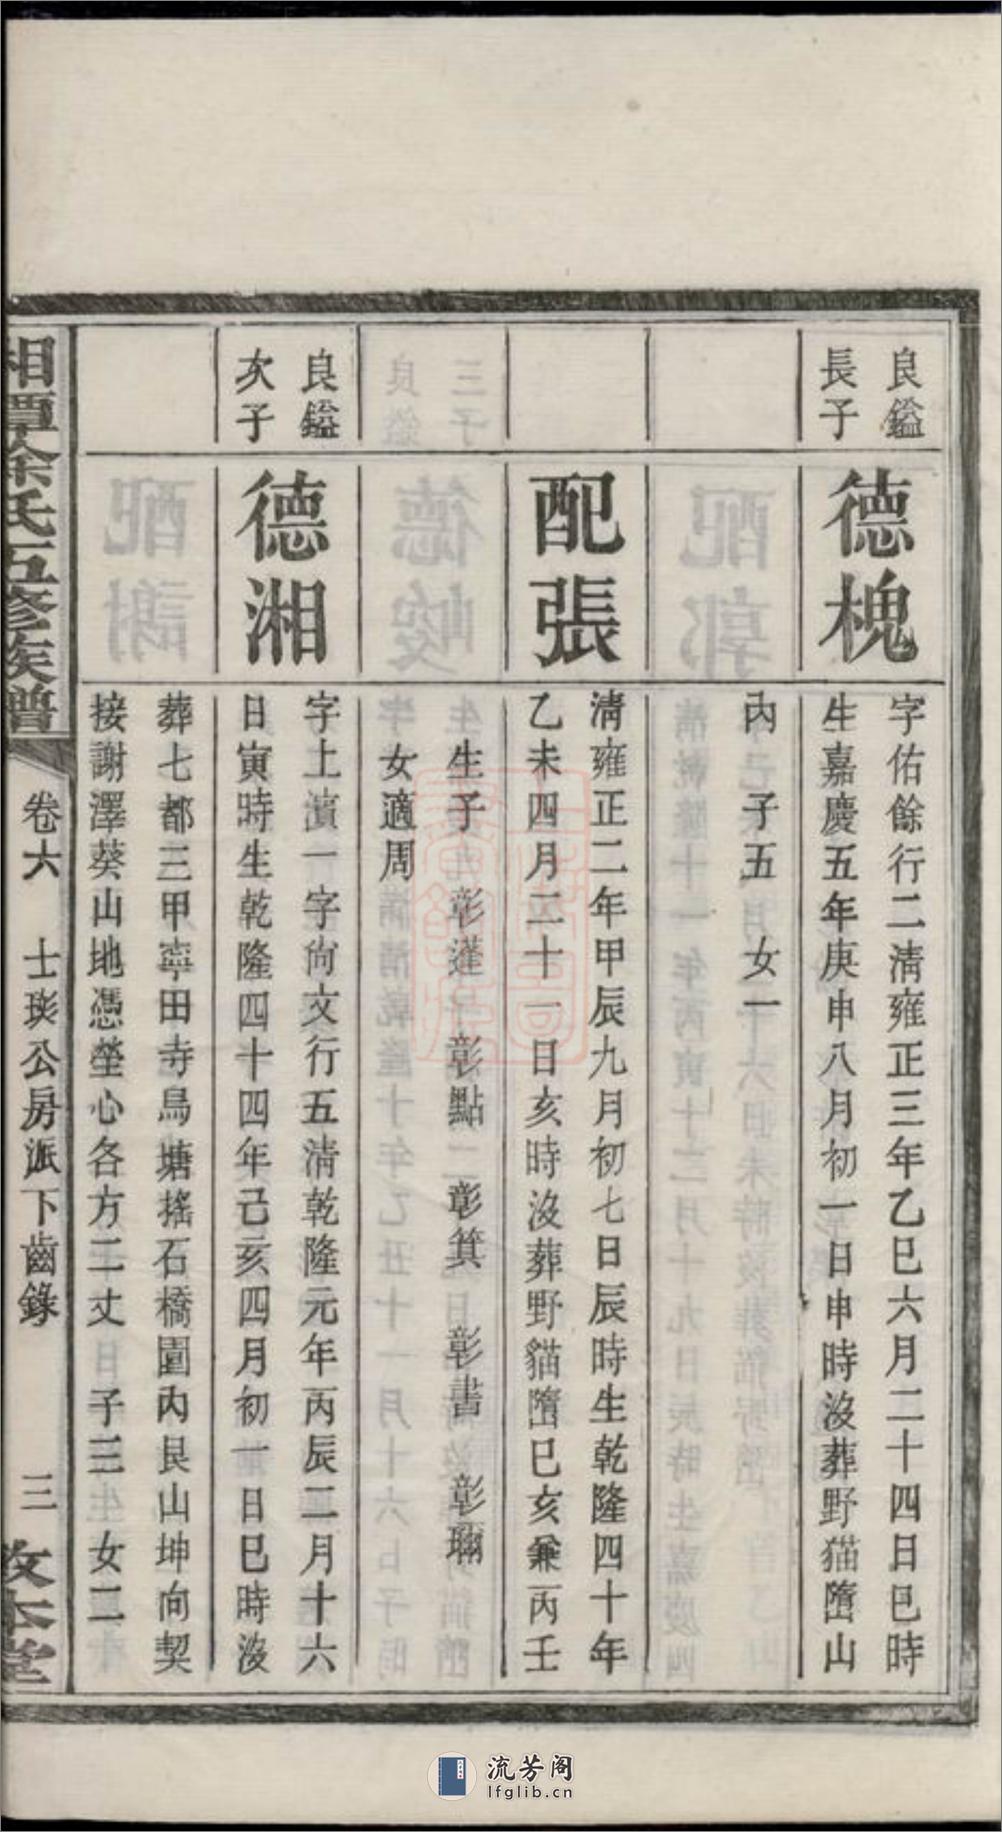 良鎰
長子
德槐
字佑餘行二清雍正三年乙巳六月二十四日巳時
生嘉慶五年庚申八月初一日申時沒葬野猫嶞山
內 子五 女一
配張
清雍正二年甲辰九月初七日辰時生乾隆四十年
乙未四月二十一日亥時沒葬野猫嶞巳亥兼丙壬
生子 彰蓬 彰點 彰箕 彰書 彰瓓
女適周
良鎰
次子
德湘
字士濱一字尙文行五清乾隆元年丙辰二月十六
日寅時生乾隆四十四年己亥四月初一日巳時沒
葬七都三甲寧田寺烏塘搖石橋園內艮山坤向契
接謝澤葵山地憑塋心各方二丈 子三 女二
相潭徐氏五修族譜
卷六 士琰公房派下齒錄 三 敦本堂
流芳阁
lfglib.cn